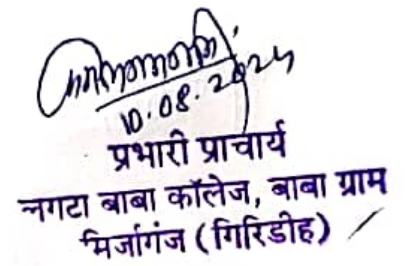 10.08.2024
प्रभारी प्राचार्य
लंगटा बाबा कॉलेज, बाबा ग्राम
मिर्जागंज (गिरिडीह)